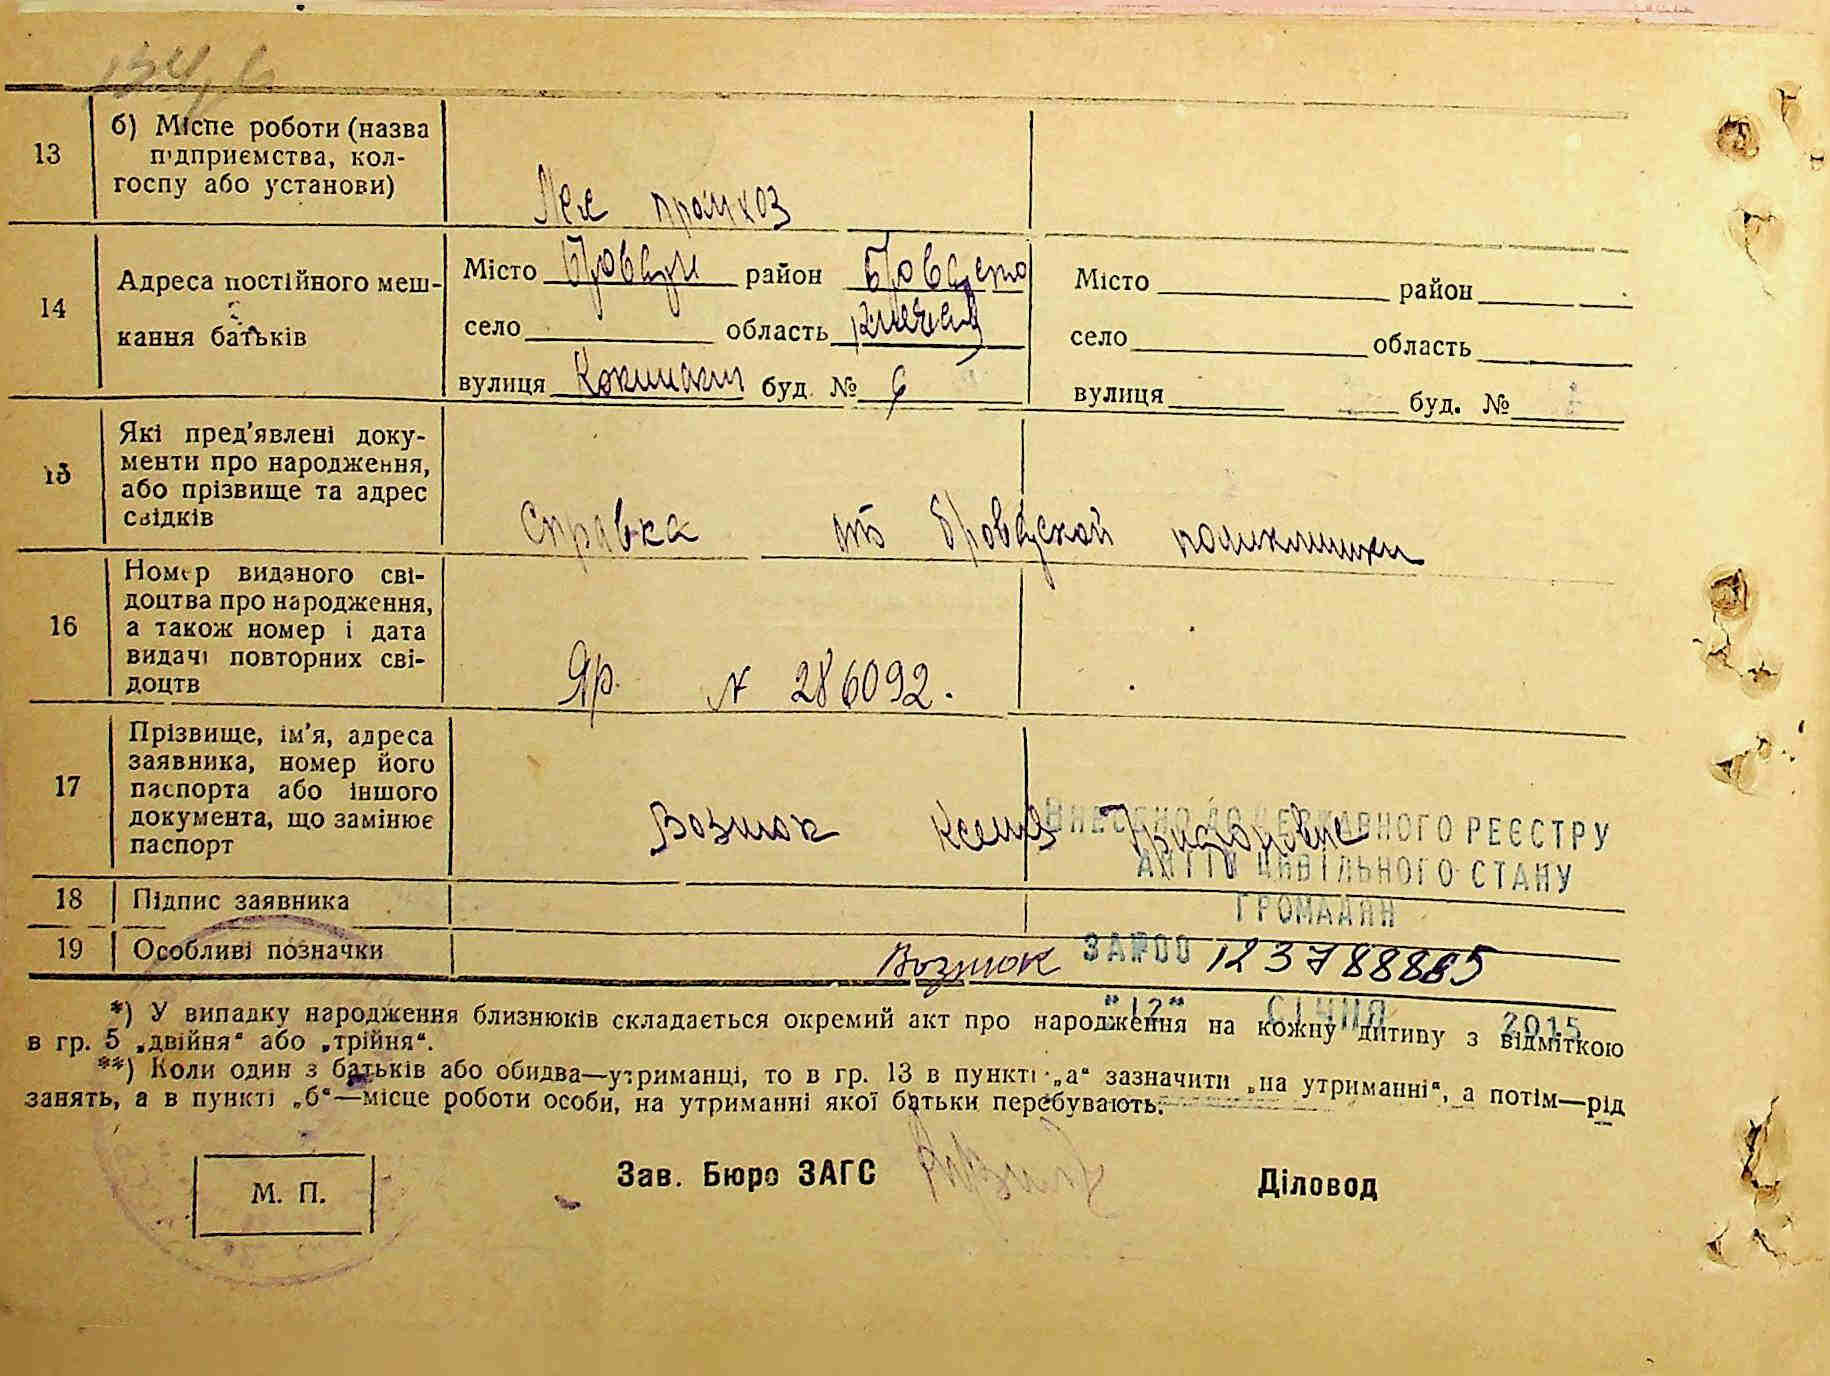 13
б) Місце роботи (назва
підприємства, кол-
госпу або установи)
промхоз
14
Адреса постійного меш-
кання батьків
Місто Бровари район
село область
вулиця буд. № 6
Місто район
село область
вулиця буд. №
15
Які пред'явлені доку-
менти про народження,
або прізвище та адрес
свідків
Справка от Броварской поликлиники
16
Номер виданого сві-
доцтва про народження,
а також номер і дата
видачі повторних сві-
доцтв
ЯР. № 286092.
17
Прізвище, ім'я, адреса
заявника, номер його
паспорта або іншого
документа, що замінює
паспорт
Вознюк Ксения
ВНЕСЕНО ДО ДЕРЖАВНОГО РЕЄСТРУ
АКТІВ ЦИВІЛЬНОГО СТАНУ
ГРОМАДЯН
18 Підпис заявника
19 Особливі позначки
Вознюк
ЗА №00 123788885
"12" СІЧНЯ 2015
*) У випадку народження близнюків складається окремий акт про народження на кожну дитину з відміткою
в гр. 5 „двійня“ або „трійня“.
**) Коли один з батьків або обидва—утриманці, то в гр. 13 в пункті „а“ зазначити „на утриманні“, а потім—рід
занять, а в пункті „б“—місце роботи особи, на утриманні якої батьки перебувають.
Зав. Бюро ЗАГС
Діловод
М. П.